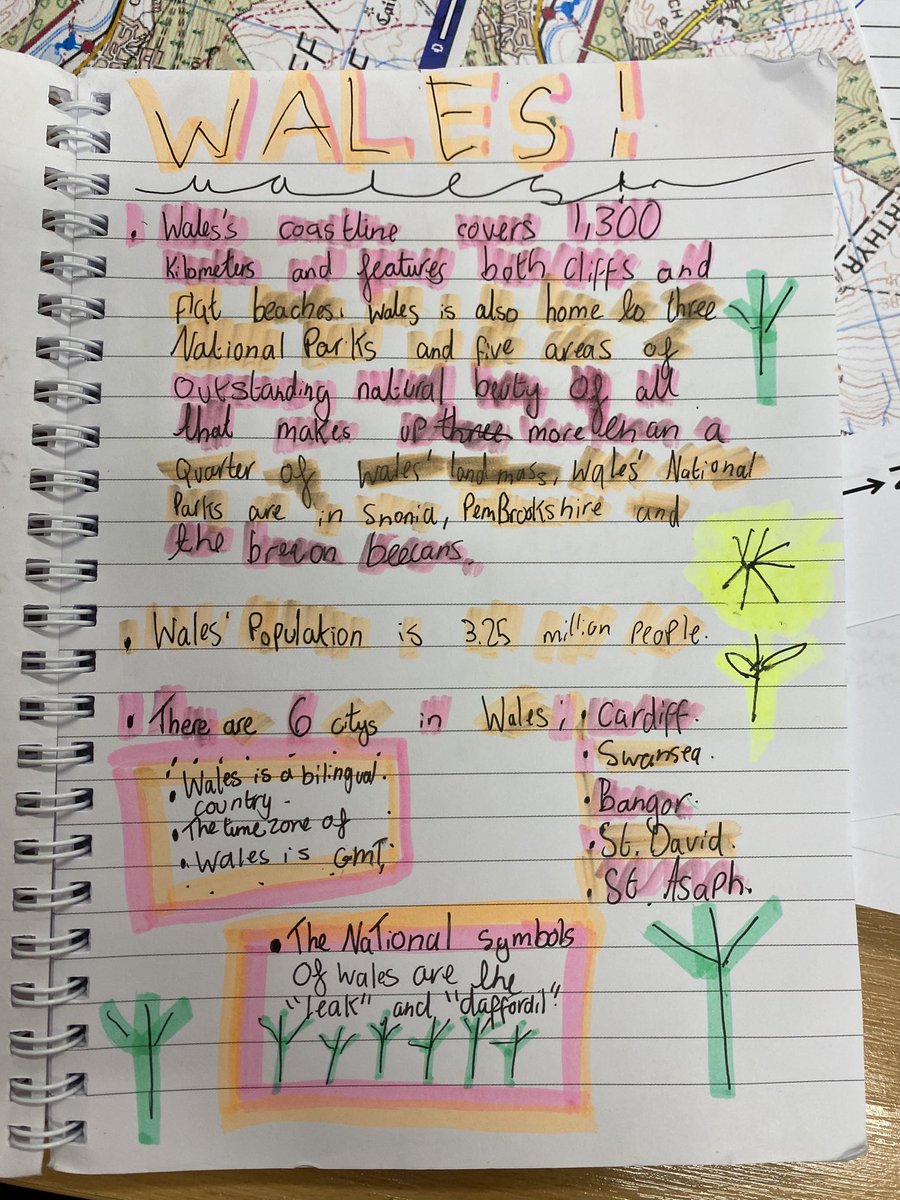 WALES!
wales!
• Wales's coastline covers 1,300
Kilometers and features both cliffs and
flat beaches. Wales is also home to three
National Parks and five areas of
Outstanding natural beuty of all
that makes up three more than a
Quarter of Wales' land mass, Wales' National
Parks are in Snonia, PemBrookshire and
the brecon beecans.
• Wales' Population is 3.25 million people.
• There are 6 citys in Wales; • Cardiff.
• Swansea.
• Bangor.
• St. David.
• St. Asaph.
• Wales is a bilingual
country.
• The time zone of
• Wales is GMT.
• The National symbols
Of Wales are the
"leak" and "daffordil".
MERTHYR